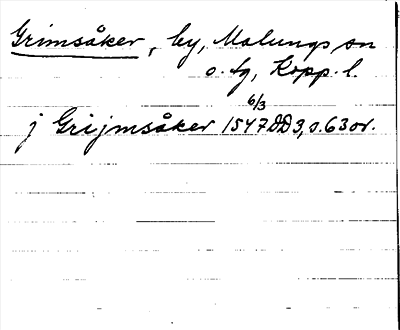 Grimsåker, by, Malungs sn
o. tg, Kopp. l.
6/3
j Grijmsåker 1547 DD3, s. 63 or.